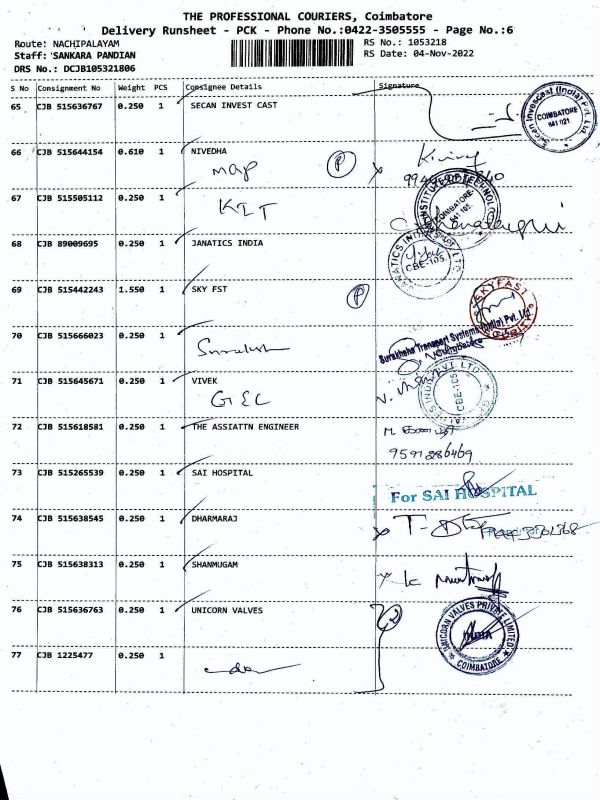 THE PROFESSIONAL COURIERS, Coimbatore
Delivery Runsheet - PCK - Phone No.:0422-3505555 - Page No.:6
Route: NACHIPALAYAM
RS No.: 1053218
Staff: SANKARA PANDIAN
RS Date: 04-Nov-2022
DRS No.: DCJB105321806
S No Consignment No Weight PCS Consignee Details Signature
65 CJB 515636767 0.250 1 SECAN INVEST CAST
COIMBATORE
641 021.
66 CJB 515644154 0.610 1 NIVEDHA
map P
67 CJB 515505112 0.250 1
KIT
COIMBATORE
641 105.
68 CJB 89009695 0.250 1 JANATICS INDIA
CBE-105
69 CJB 515442243 1.550 1 SKY FST
P
SKYFAST
70 CJB 515666023 0.250 1
Suraksha Transport Systems (India) Pvt. Ltd.
Coimbatore
71 CJB 515645671 0.250 1 VIVEK
GEC
CBE-105
72 CJB 515618581 0.250 1 THE ASSIATTN ENGINEER
9591286469
73 CJB 515265539 0.250 1 SAI HOSPITAL
For SAI HOSPITAL
74 CJB 515638545 0.250 1 DHARMARAJ
75 CJB 515638313 0.250 1 SHANMUGAM
76 CJB 515636763 0.250 1 UNICORN VALVES
UNICORN VALVES PRIVATE LIMITED
INDIA
COIMBATORE
77 CJB 1225477 0.250 1